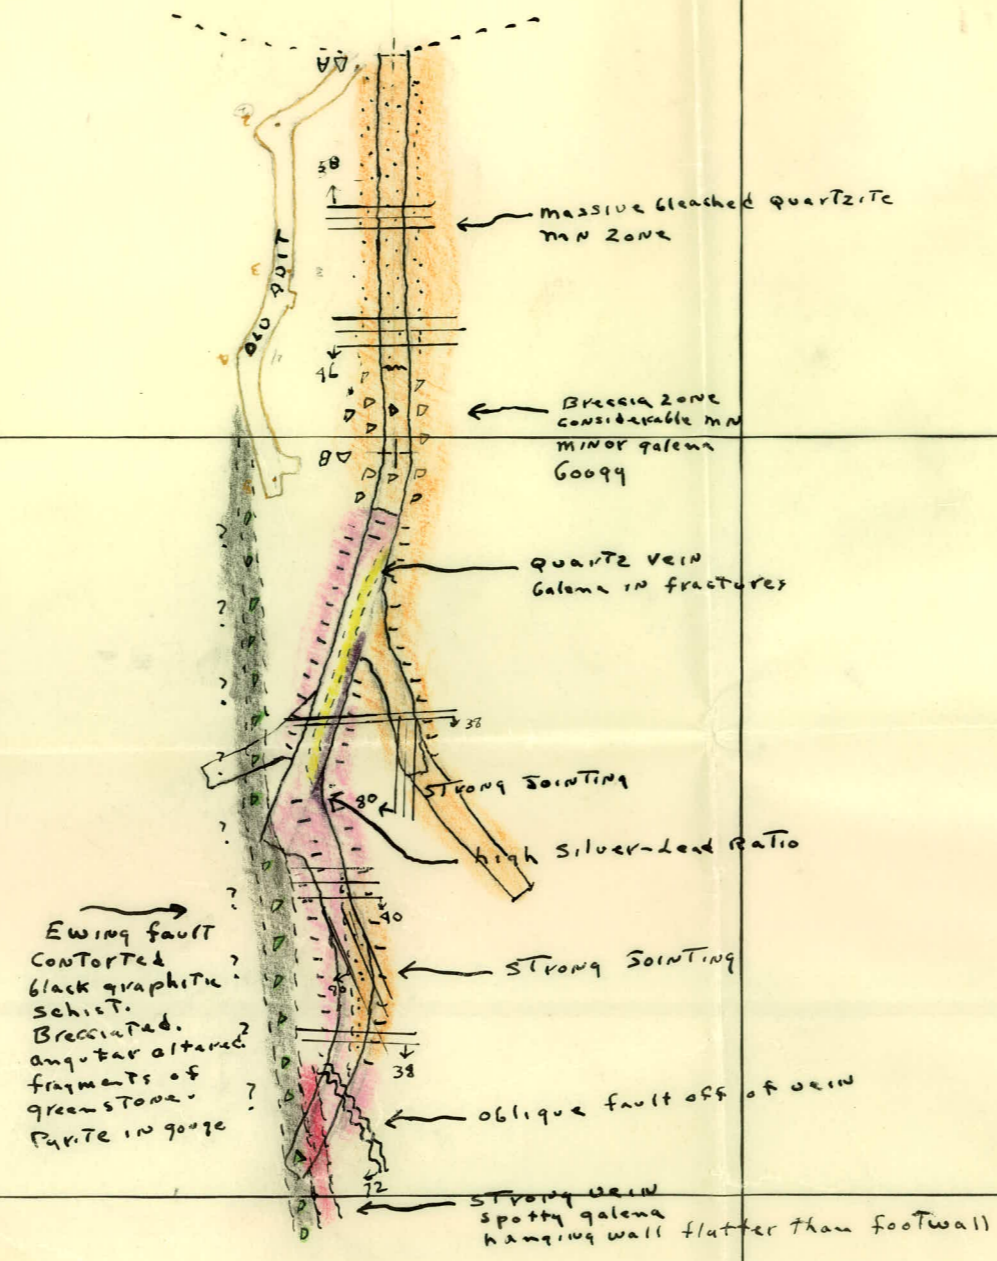 VA
58
massive bleached quartzite
MN ZONE
OLD ADIT
46
Breccia zone
considerable MN
minor galena
Googy
B
Quartz vein
Galena in fractures
38
STRONG JOINTING
80
high Silver-Lead Ratio
40
Ewing fault
Contorted
black graphitic
schist.
Brecciated.
angular altered
fragments of
greenstone.
Pyrite in gouge
STRONG JOINTING
90
38
oblique fault off of vein
72
STRONG vein
spotty galena
hanging wall flatter than footwall